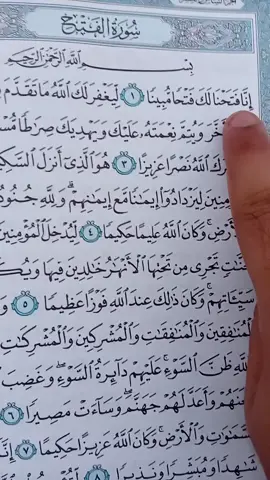 سُورَةُ الْفَتْحِ
بِسْمِ اللَّهِ الرَّحْمَٰنِ الرَّحِيمِ
إِنَّا فَتَحْنَا لَكَ فَتْحًا مُّبِينًا ١ لِّيَغْفِرَ لَكَ اللَّهُ مَا تَقَدَّمَ
وَيُتِمَّ نِعْمَتَهُ عَلَيْكَ وَيَهْدِيَكَ صِرَاطًا
اللَّهُ نَصْرًا عَزِيزًا ٣ هُوَ الَّذِي أَنزَلَ
لِيَزْدَادُوا إِيمَانًا مَّعَ إِيمَانِهِمْ وَلِلَّهِ جُنُودُ
وَكَانَ اللَّهُ عَلِيمًا حَكِيمًا ٤ لِّيُدْخِلَ الْمُؤْمِنِينَ
تَجْرِي مِن تَحْتِهَا الْأَنْهَارُ خَالِدِينَ فِيهَا
سَيِّئَاتِهِمْ وَكَانَ ذَٰلِكَ عِندَ اللَّهِ فَوْزًا عَظِيمًا ٥
الْمُنَافِقِينَ وَالْمُنَافِقَاتِ وَالْمُشْرِكِينَ وَالْمُشْرِكَاتِ
ظَنَّ السَّوْءِ عَلَيْهِمْ دَائِرَةُ السَّوْءِ وَغَضِبَ
وَأَعَدَّ لَهُمْ جَهَنَّمَ وَسَاءَتْ مَصِيرًا ٦
السَّمَاوَاتِ وَالْأَرْضِ وَكَانَ اللَّهُ عَزِيزًا حَكِيمًا ٧ إِنَّا
شَاهِدًا وَمُبَشِّرًا وَنَذِيرًا ٨